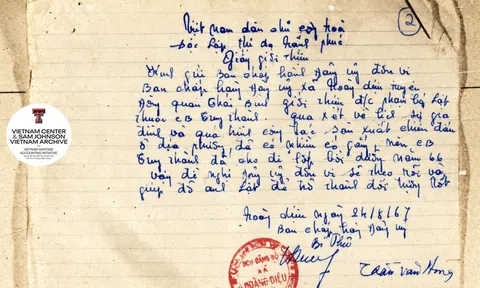 Việt Nam dân chủ cộng hoà
②
Độc lập tự do hạnh phúc
Giấy giới thiệu
Kính gửi Ban chấp hành Đảng uỷ đơn vị
Ban chấp hành Đảng uỷ xã Hoàng Diệu huyện
Đông Quan Thái Bình giới thiệu đ/c Phạm bá Lật
thuộc CB Trung Thành qua xét về lịch sử gia
đình và quá trình công tác sản xuất chiến đấu
ở địa phương đã có nhiều cố gắng nên CB
Trung Thành đã cho đi lớp bồi dưỡng năm 66
vậy đề nghị Đảng uỷ đơn vị sẽ theo dõi và
giúp đỡ anh Lật để trở thành đối tượng tốt
Hoàng Diệu ngày 24/8/67
Ban chấp hành Đảng uỷ
Bí Thư
BCH ĐẢNG BỘ
XÃ
HOÀNG DIỆU
Trần văn
VIETNAM CENTER
& SAM JOHNSON
VIETNAM ARCHIVE
VIETNAM WARTIME
ACCOUNTING INITIATIVE